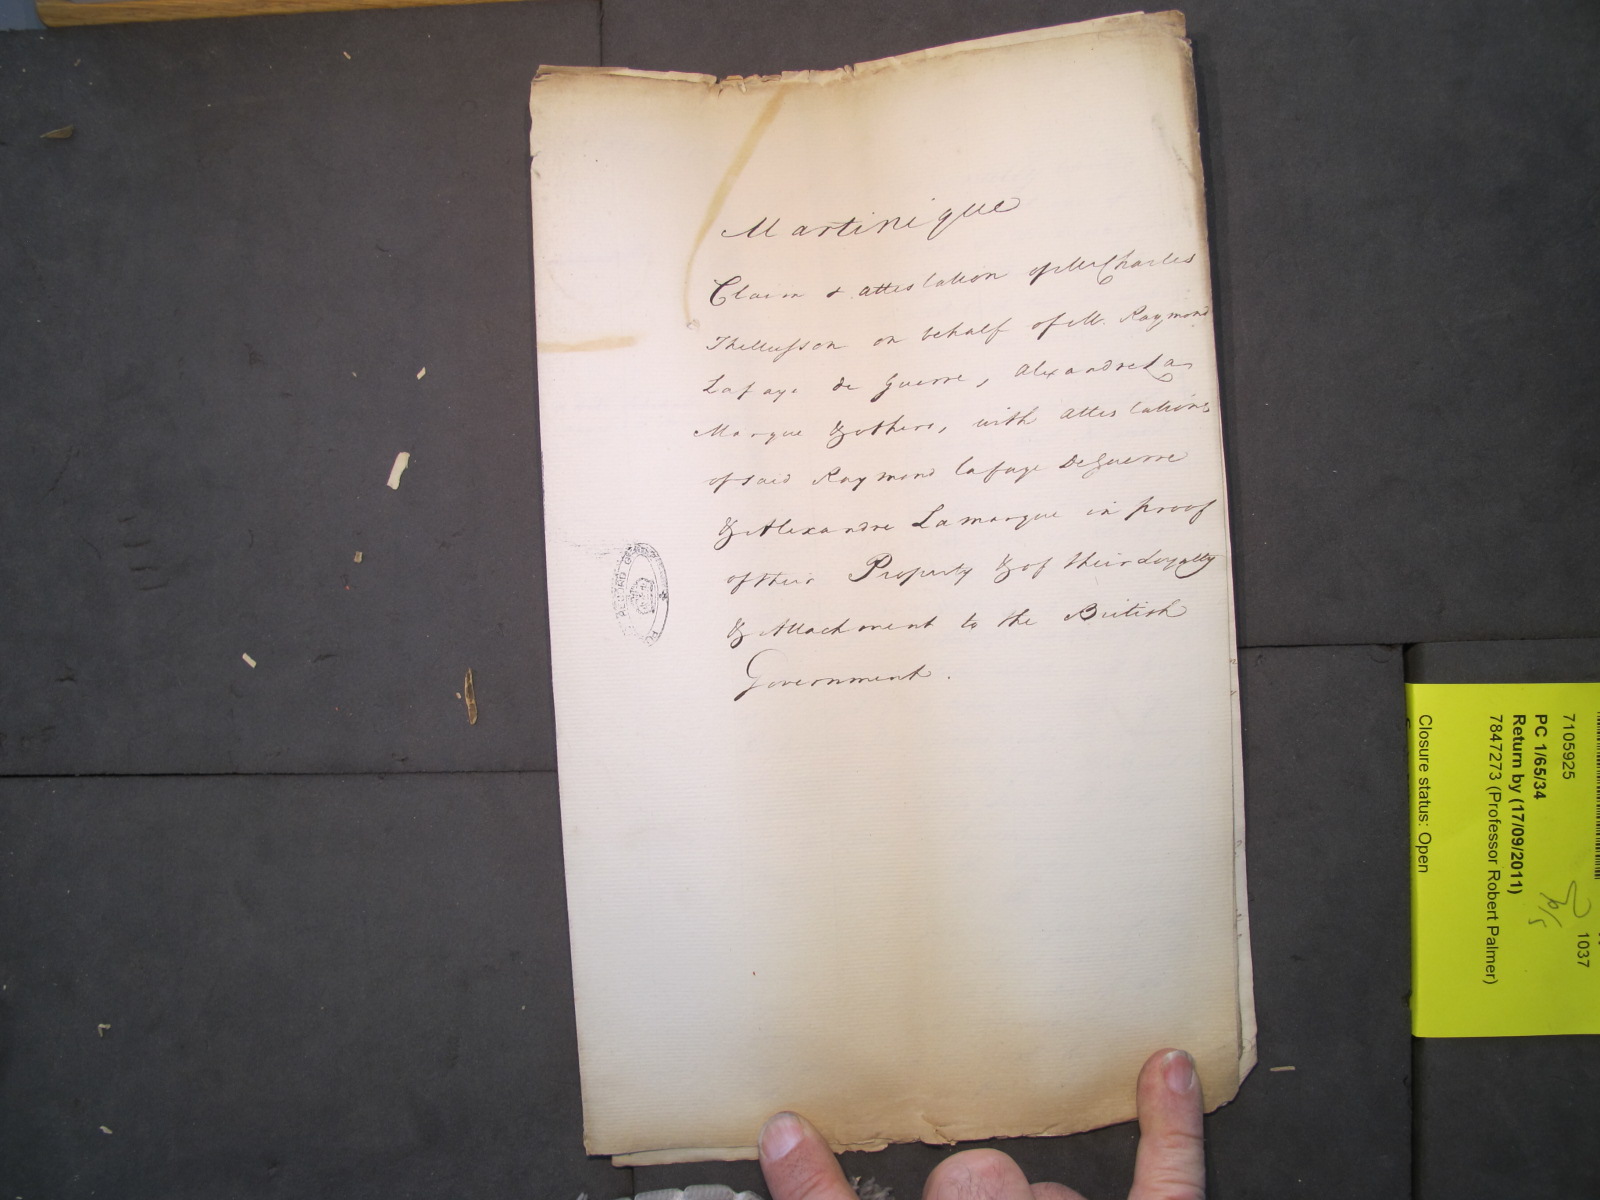 Martinique
Claim & attestation of Mr Charles
Thellusson on behalf of M. Raymond
Lafaye de Guerre, Alexandre La
Marque & others, with attestations
of said Raymond Lafaye De Guerre
& Alexandre Lamarque in proof
of their Property & of their Loyalty
& Attachment to the British
Government.
RECORD
7105925
1037
PC 1/65/34
Return by (17/09/2011)
7847273 (Professor Robert Palmer)
Closure status: Open